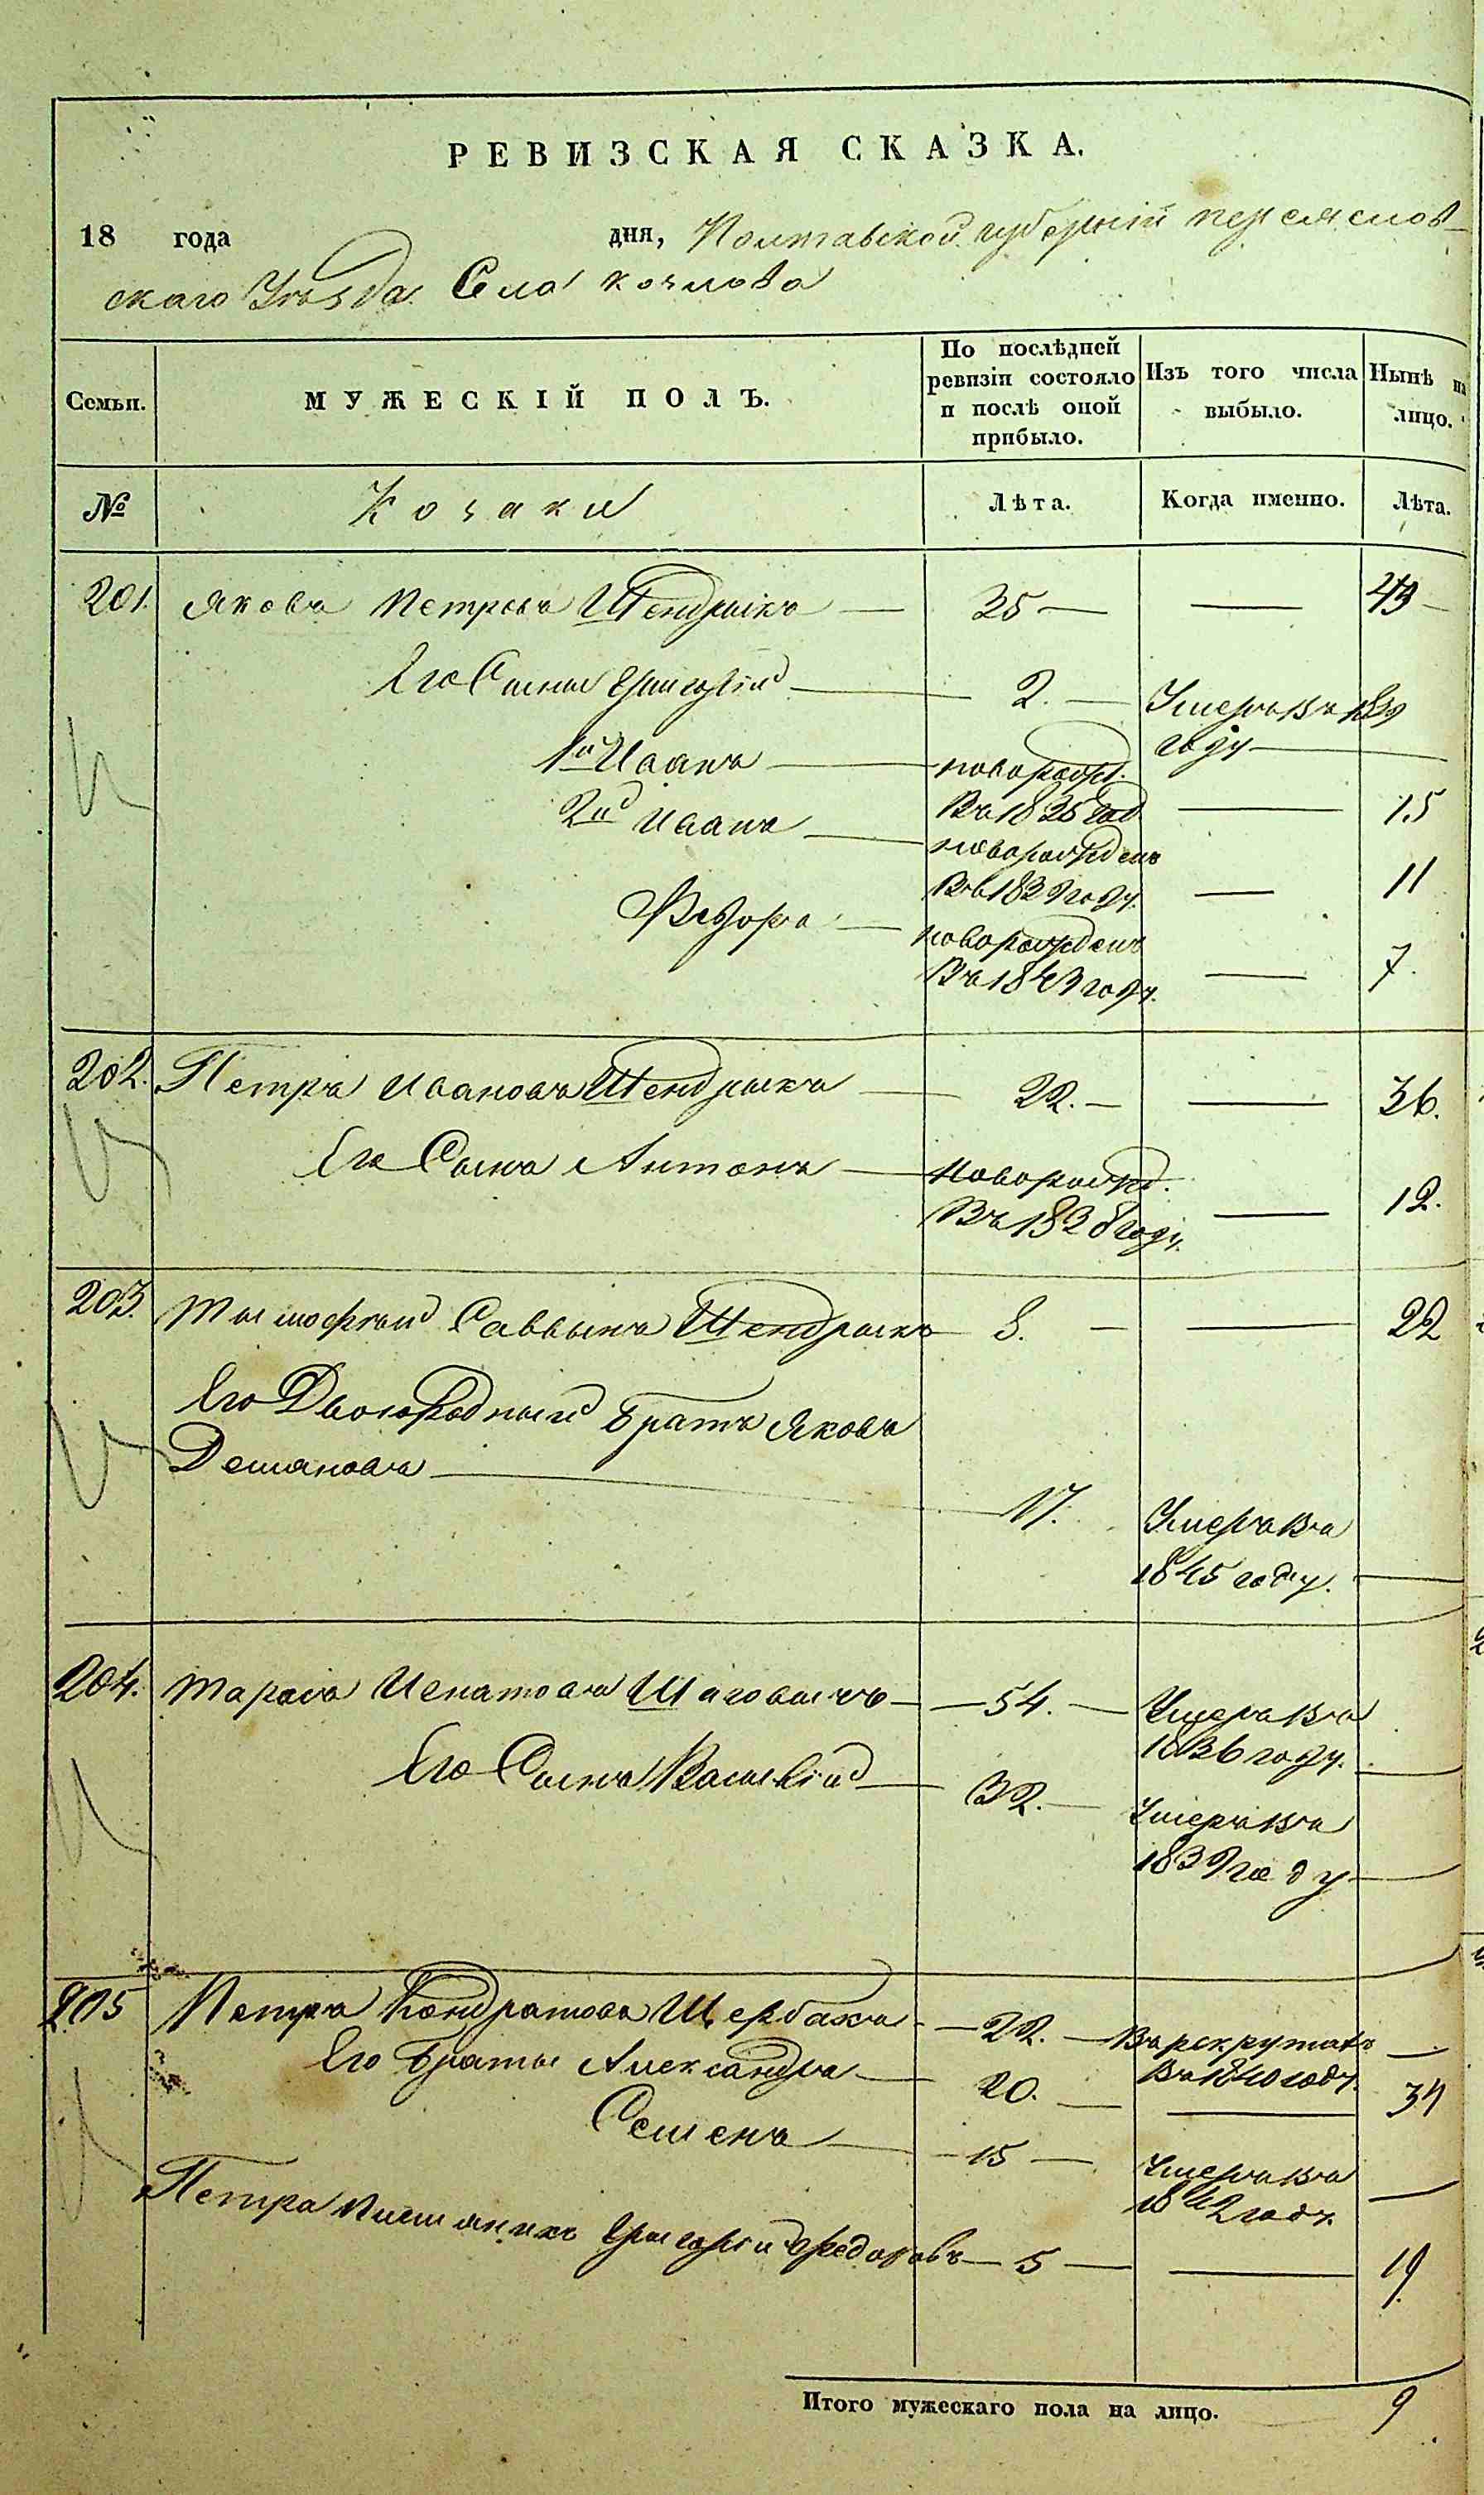 РЕВИЗСКАЯ СКАЗКА.
18 года дня, Полтавской губерніи переяслов-
скаго Уезда Села козлова
Семьи. МУЖЕСКІЙ ПОЛЪ. По послѣдней ревизіи состояло и послѣ оной прибыло. Изъ того числа выбыло. Нынѣ на лицо.
№ Козаки Лѣта. Когда именно. Лѣта.
201. Яковъ Петровъ Шендрикъ — 35 — — 49 —
Его Сыны Григорій — 2. — Умеръ въ 1839
году —
1й Иванъ — новорожд.
Въ 1835 год — 15
2й Иванъ — новорожденъ
Въ 1839 году. — 11
Федоръ — новорожденъ
Въ 1843 году. — 7.
202. Петръ Ивановъ Шендрыкъ — 22. — — 36.
Его Сынъ Антонъ — новорожд.
Въ 1838 году. — 12.
203. Тымофѣй Саввынъ Шендрыкъ — 8. — — 22
Его Двоюродный братъ Яковъ
Демяновъ — 17. Умеръ въ
1845 году. —
204. Тарасъ Игнатовъ Шаговыкъ — 54. — Умеръ въ
1836 году. —
Его Сынъ Василій — 32. — Умеръ въ
1839 году —
205 Петръ Кондратовъ Щербакъ — 22. — Въ рекрутахъ
Въ 1840 году. —
Его Браты Александръ — 20. — — 34
Семенъ — 15 — Умеръ въ
1842 году. —
Петра племяникъ Григорій Федоровъ — 5 — — 19.
Итого мужескаго пола на лицо. 9